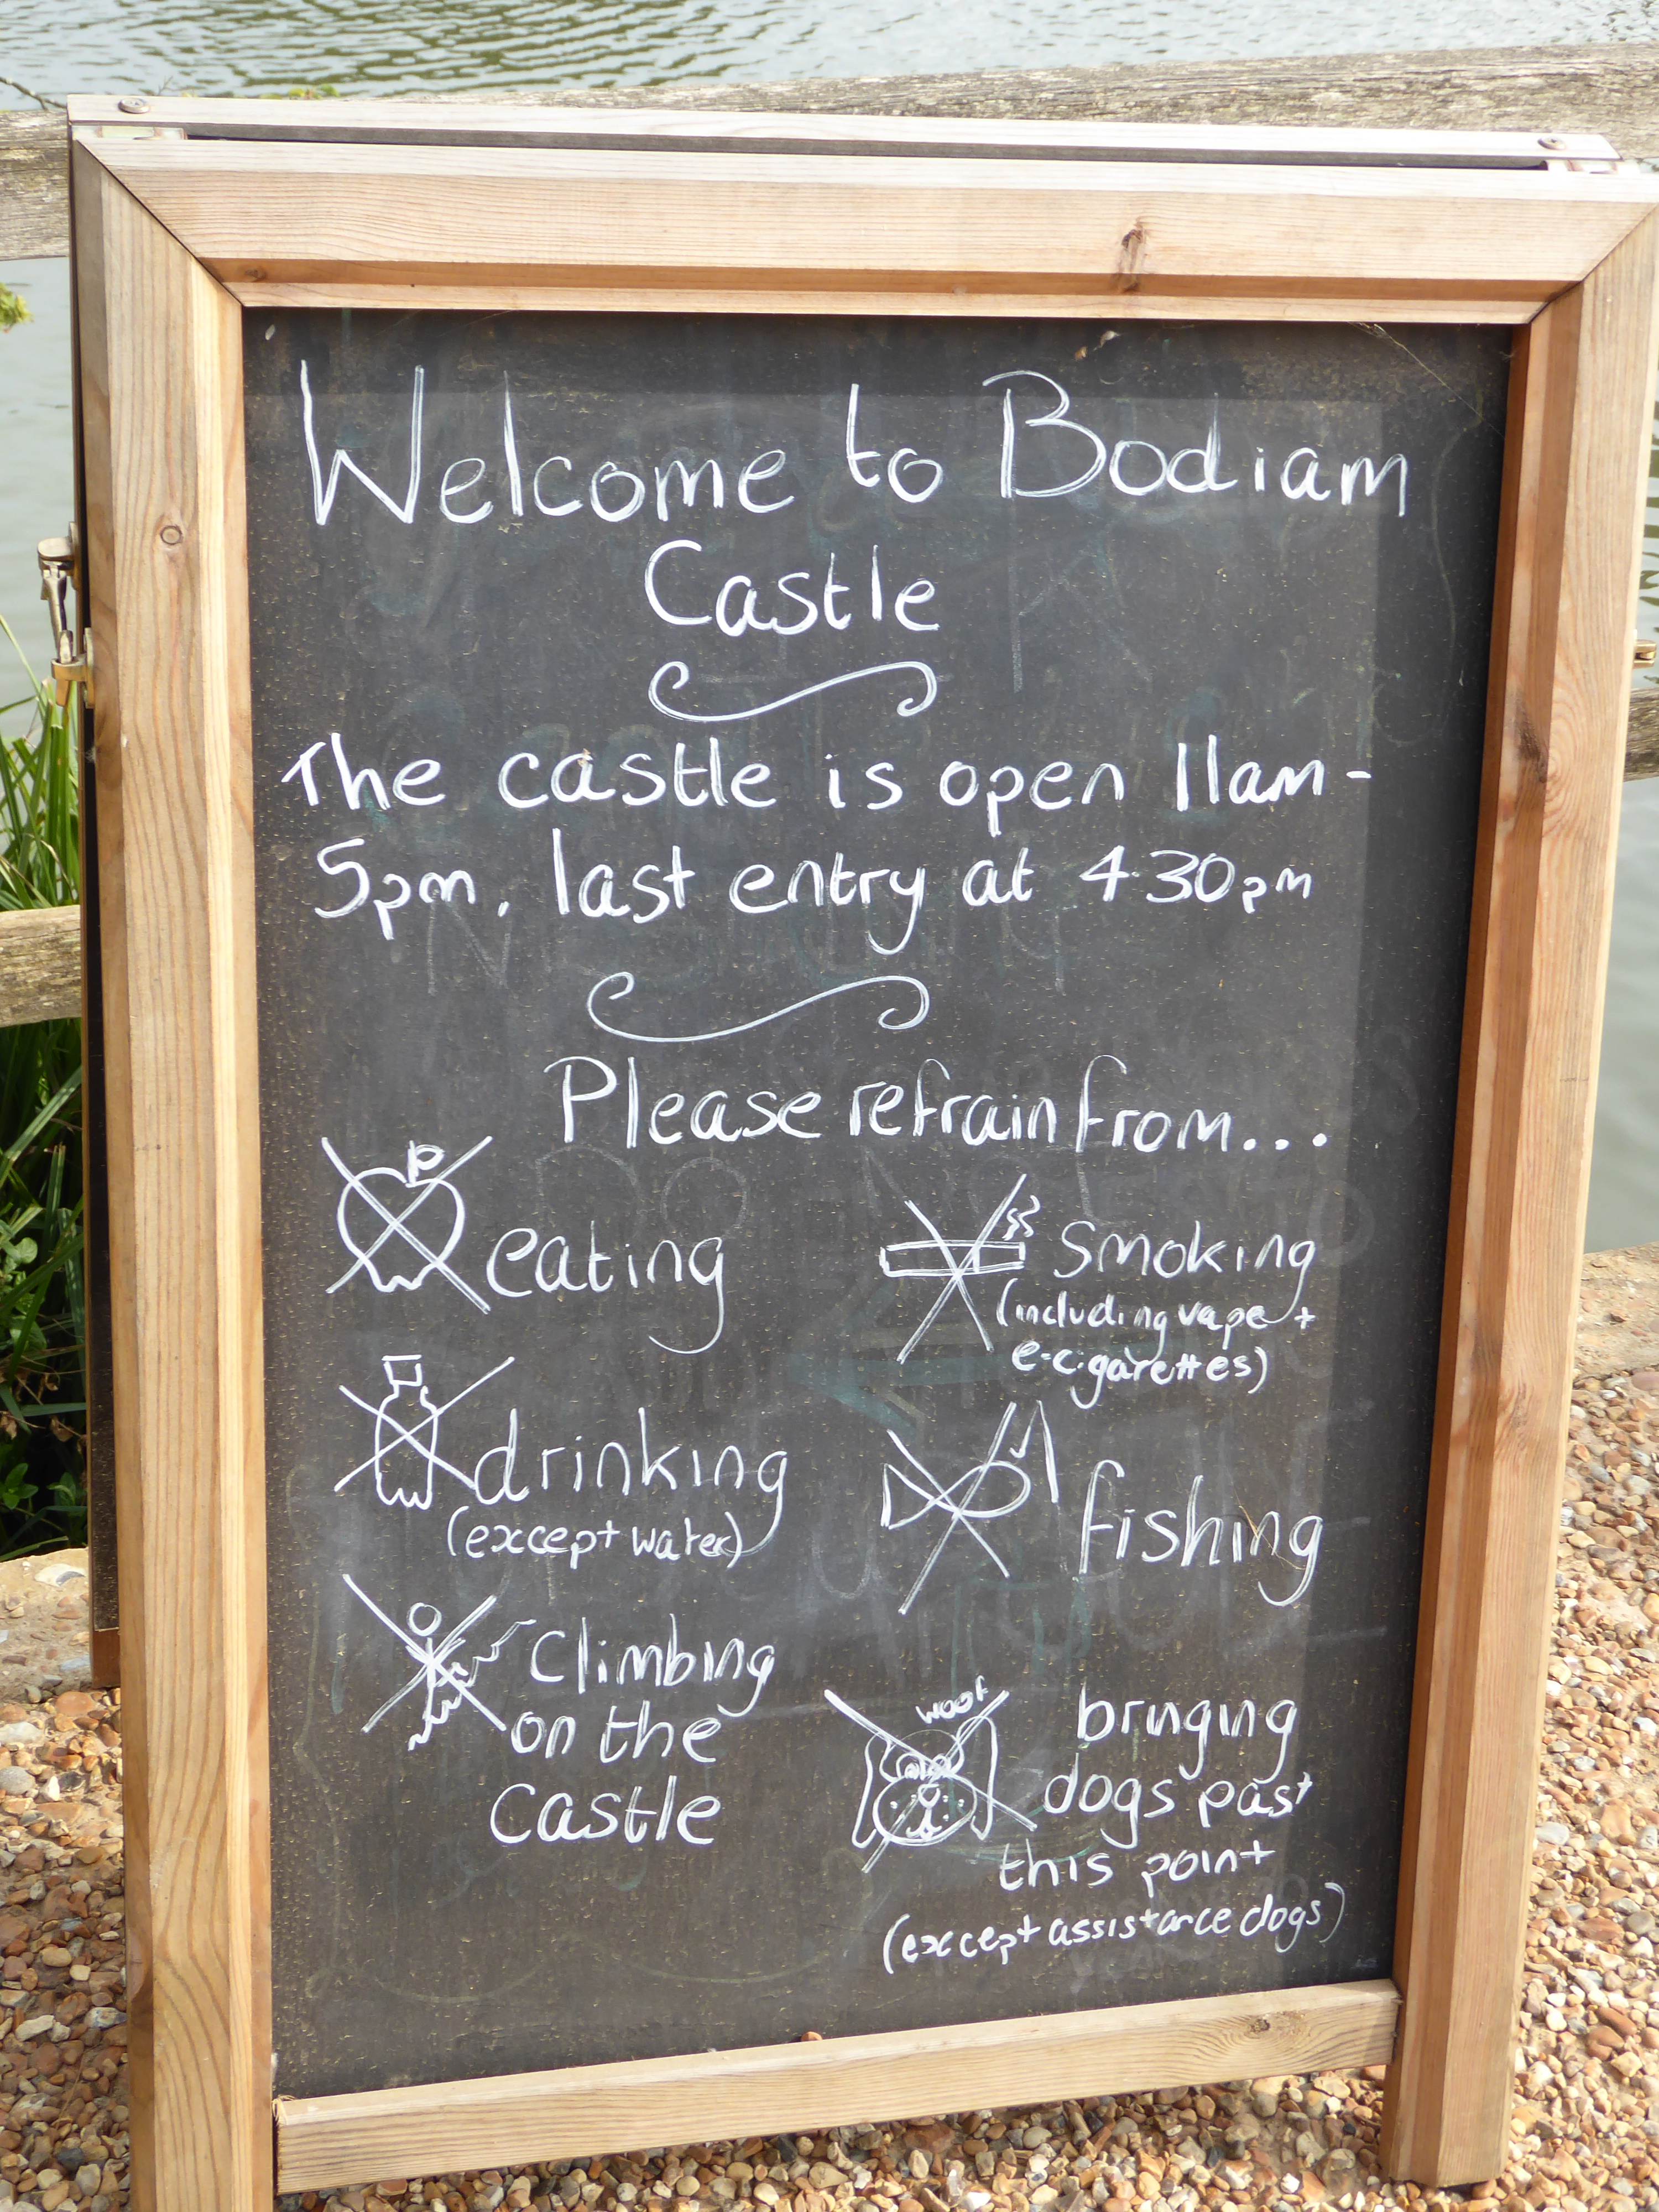 Welcome to Bodiam
Castle
The castle is open 11am-
5pm, last entry at 4.30pm
Please refrain from...
eating
Smoking
(including vape +
e-cigarettes)
drinking
(except water)
fishing
Climbing
on the
Castle
woof
bringing
dogs past
this point
(except assistance dogs)